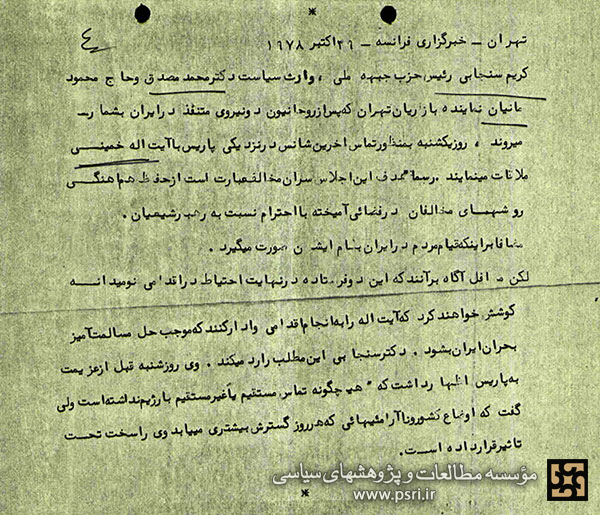 ٤
تهران – خبرگزاری فرانسه – ۲۹ اکتبر ۱۹۷۸
کریم سنجابی رئیس حزب جبهه ملی ، وارث سیاست دکتر محمد مصدق و حاج محمود
مانیان نماینده بازاریان تهران که پس از روحانیون دو نیروی متنفذ در ایران بشمار
میروند ، روز یکشنبه بمنظور تماس اخرین شانس در نزدیکی پاریس با آیت اله خمینی
ملاقات مینمایند . رسما هدف این اجلاس سران مخالف عبارت است از حفظ هم اهنگی
روشهای مخالفان در فضائی آمیخته با احترام نسبت به رهبر شیعیان .
مضافا براینکه قیام مردم در ایران بنام ایشان صورت میگیرد .
لکن محافل آگاه برآنند که این دو فرستاده در نهایت احتیاط در اقدامی نومیدانه
کوشش خواهند کرد که آیت اله را به انجام اقدامی وادار کنند که موجب حل مسالمت آمیز
بحران ایران بشود . دکتر سنجابی این مطلب را رد میکند . وی روز شنبه قبل از عزیمت
به پاریس اظهار داشت که " هیچگونه تماس مستقیم یا غیر مستقیم با رژیم نداشته است ولی
گفت که اوضاع کشور و ناآرامیهائی که هر روز گسترش بیشتری مییابد وی را سخت تحت
تاثیر قرار داده است .
مؤسسه مطالعات و پژوهشهای سیاسی
www.psri.ir